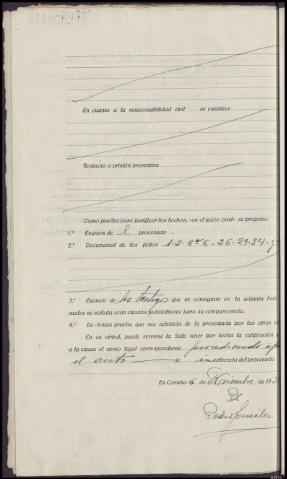 En cuanto a la responsabilidad civil se establece
Respecto a prisión preventiva
Como prueba para justificar los hechos, en el juicio oral se propone:
1.º Examen del procesado
2.º Documental de los folios 1-2-5
3.º Examen de los testigos que se consignan en la adjunta lista
cuales se solicita sean citados judicialmente para su comparecencia.
4.º La demás prueba que sea admitida de la presentada por las otras
En su virtud, puede servirse la Sala tener por hecha la calificación
a la causa el curso legal correspondiente
el auto de insolvencia del procesado
La Coruña de Diciembre de 193
Pedro